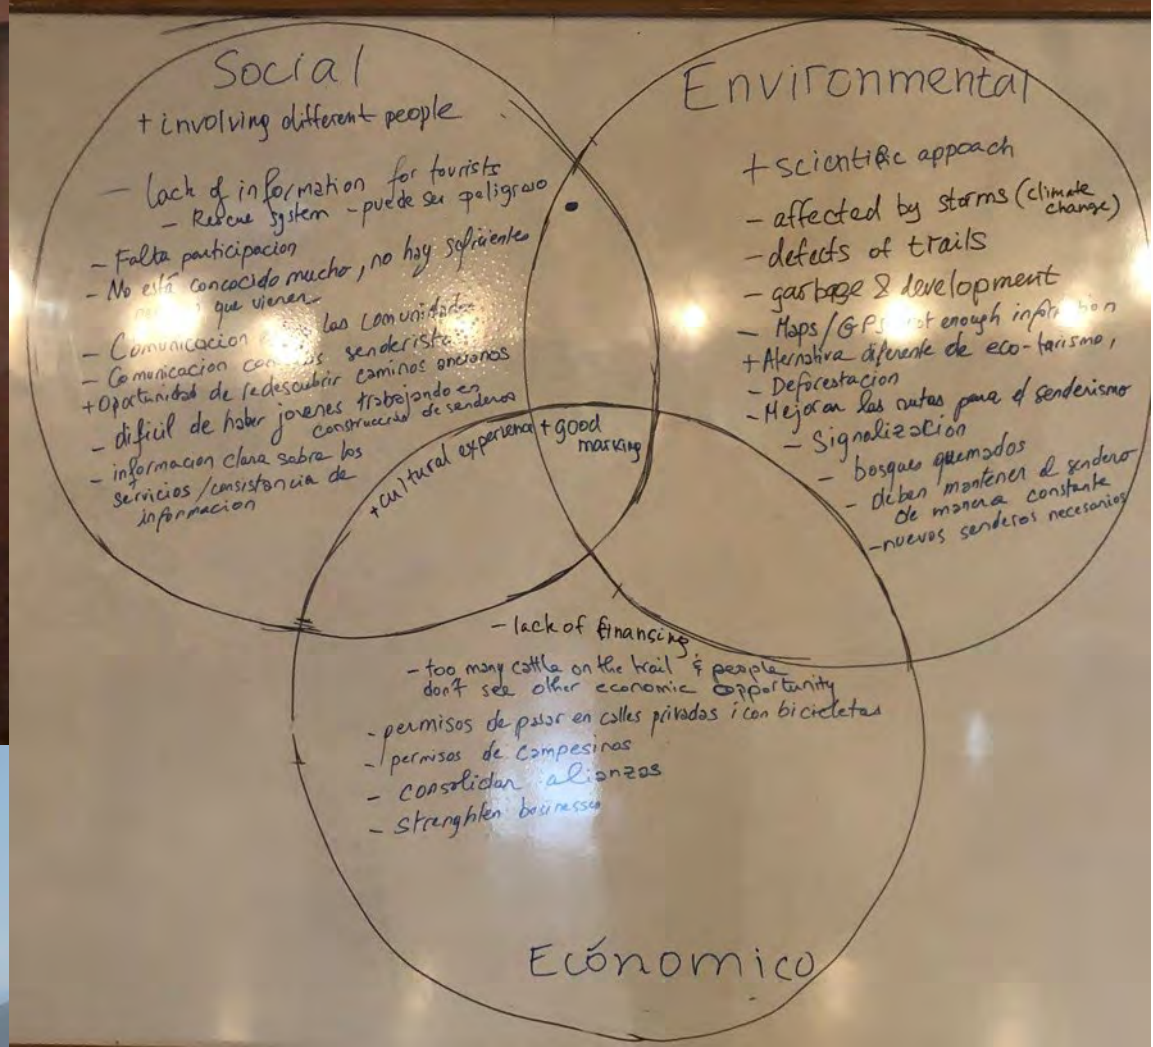 Social
+ involving different people
- lack of information for tourists
- Rescue system - puede ser peligroso
- Falta participacion
- No está concocido mucho, no hay suficientes
que vienen
- Comunicacion las comunidades
- Comunicacion con senderistas
+ Oportunidad de redescubrir caminos oncionos
- dificil de haber jovenes trabajando en
construcción de senderos
- informacion clara sobre los
servicios / consistancia de
informacion
Environmental
+ scientific appoach
- affected by storms (climate
change)
- defects of trails
- garbage & development
- Maps / GPS not enough information
+ Alernativa diferente de eco-turismo,
- Deforestacion
- Mejoran las rutas para el senderismo
- Signalización
- bosques quemados
- deben mantener el sendero
de manera constante
- nuevos senderos necesarios
+ cultural experience
+ good
marking
- lack of financing
- too many cattle on the trail & people
don't see other economic opportunity
- permisos de pasar en calles privadas i con bicicletas
- permisos de campesinos
- consolidar alianzas
- strenghten businesses
Ecónomico